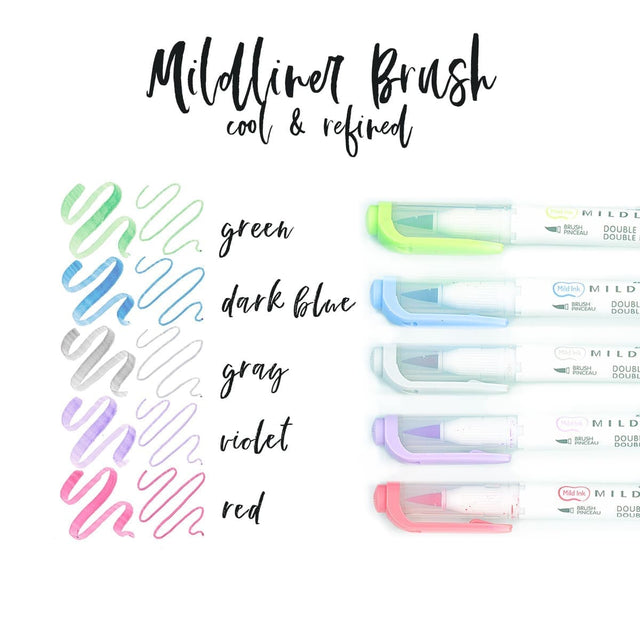 Mildliner Brush
cool & refined
green
dark blue
gray
violet
red
Mild Ink MILDL
BRUSH
PINCEAU
DOUBLE
DOUBLE
Mild Ink MILD
BRUSH
PINCEAU
DOUB
DOUBL
Mild Ink MILD
BRUSH
PINCEAU
DOUB
DOUBL
Mild Ink MILD
BRUSH
PINCEAU
DOUB
DOUBL
Mild Ink MILD
BRUSH
PINCEAU
DOUB
DOUBL